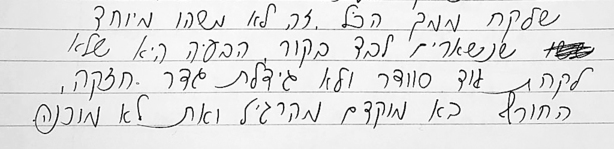 שלקח ממך הכל. זה לא משהו מיוחד
שנשארים לבד בקור הבעיה היא שלא
לקחת עוד סוודר ולא גידלת גדר. חזקה,
החורף בא מוקדם מהרגיל ואת לא מוכנה